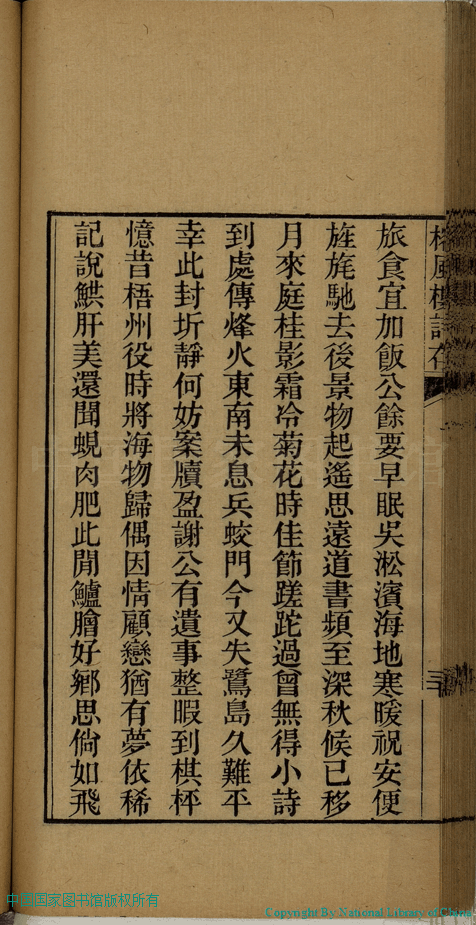 旅食宜加飯公餘要早眠吳淞濱海地寒暖祝安便
旌旄馳去後景物起遙思遠道書頻至深秋候已移
月來庭桂影霜冷菊花時佳節蹉跎過曾無得小詩
到處傳烽火東南未息兵蛟門今又失鷺島久難平
幸此封圻靜何妨案牘盈謝公有遺事整暇到棋枰
憶昔梧州役時將海物歸偶因情顧戀猶有夢依稀
記說鯕肝美還聞蜆肉肥此閒鱸膾好鄉思倘如飛
中国国家图书馆版权所有
Copyright By National Library of China